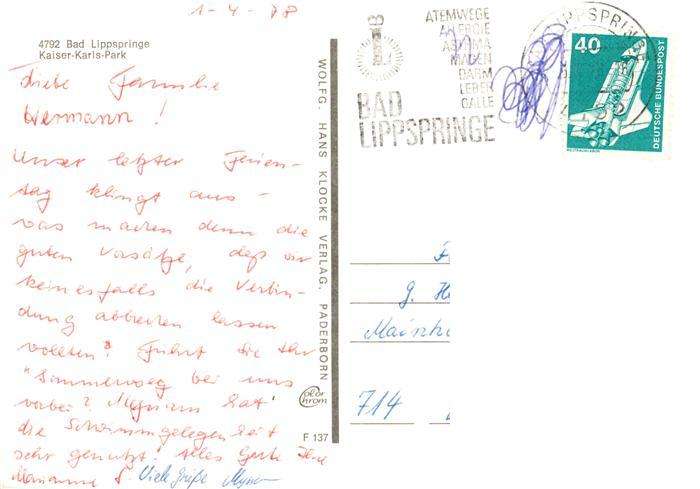 1-4-78
4792 Bad Lippspringe
Kaiser-Karls-Park
Liebe Familie
Hermann!
Unser letzter Ferien-
tag klingt aus -
was machen denn die
guten Vorsätze, daß wir
keinesfalls die Verbin-
dung abbreißen lassen
wollten? Führt Sie Ihr
"Sommerweg bei uns
vorbei? Myriam hat
die Schwimmgelegenheit
sehr genutzt! Alles Gute Ihre
Marianne S. Viele Grüße
WOLFG. HANS KLOCKE VERLAG, PADERBORN
color
chrom
F 137
ATEMWEGE
ALLERGIE
ASTHMA
MAGEN
DARM
LEBER
GALLE
BAD
LIPPSPRINGE
LIPPSPRING
40
DEUTSCHE BUNDESPOST
WELTRAUMLABOR
F
G. H
714